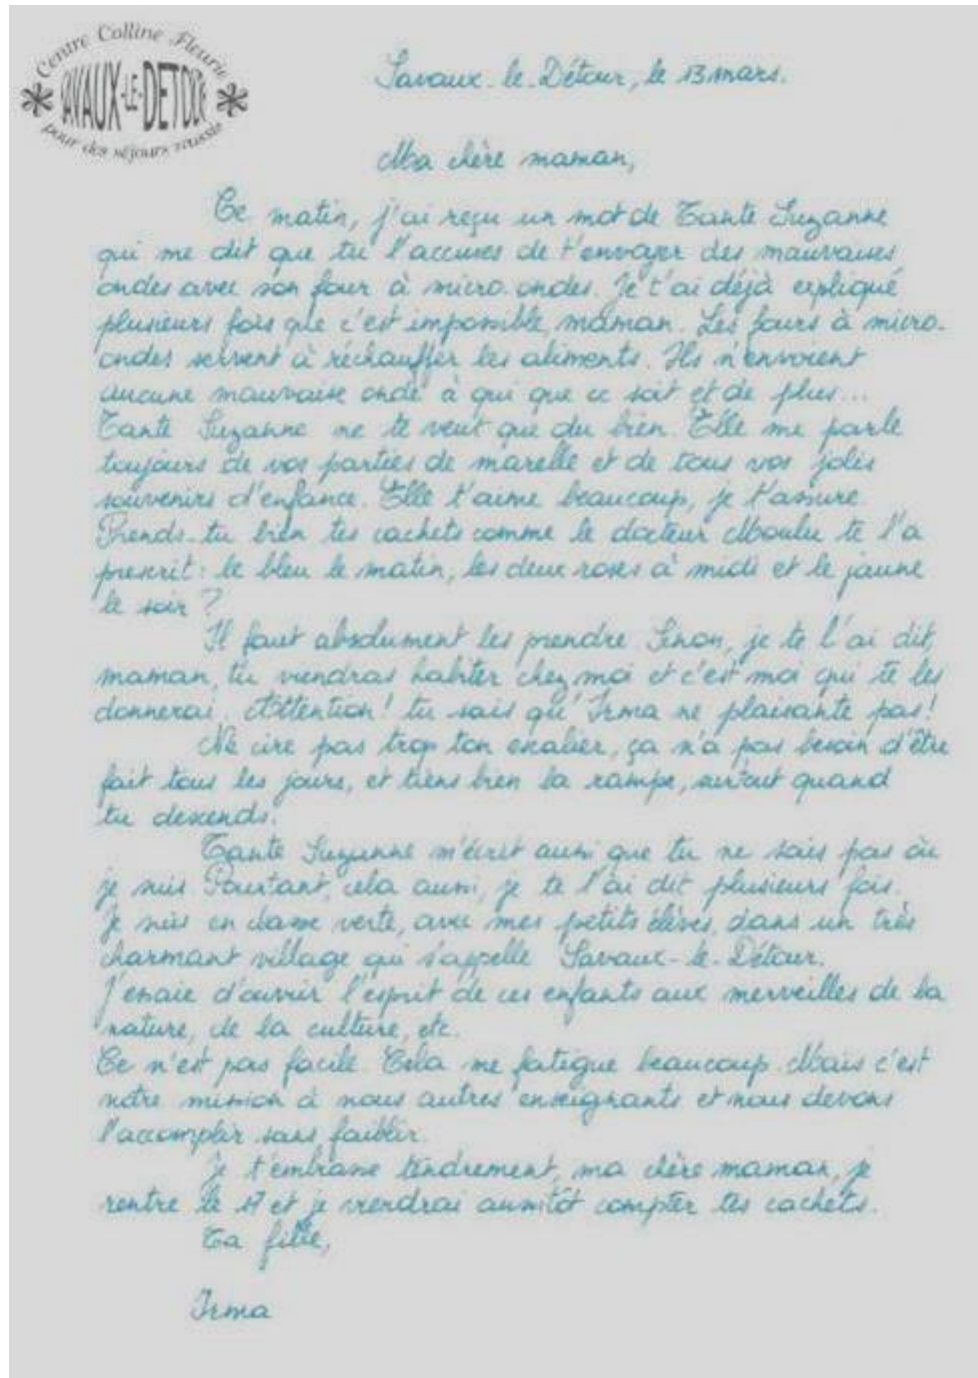 Centre Colline Fleurie
SAVAUX-LE-DETOUR
pour des séjours réussis
Savaux-le-Détour, le 13 mars.
Ma chère maman,
Ce matin, j'ai reçu un mot de Tante Suzanne
qui me dit que tu l'accuses de t'envoyer des mauvaises
ondes avec son four à micro-ondes. Je t'ai déjà expliqué
plusieurs fois que c'est impossible, maman. Les fours à micro-
ondes servent à réchauffer les aliments. Ils n'envoient
aucune mauvaise onde à qui que ce soit et de plus...
Tante Suzanne ne te veut que du bien. Elle me parle
toujours de vos parties de marelle et de tous vos jolis
souvenirs d'enfance. Elle t'aime beaucoup, je t'assure.
Prends-tu bien tes cachets comme le docteur Moulu te l'a
prescrit : le bleu le matin, les deux roses à midi et le jaune
le soir ?
Il faut absolument les prendre. Sinon, je te l'ai dit,
maman, tu viendras habiter chez moi et c'est moi qui te les
donnerai. Attention ! tu sais qu'Irma ne plaisante pas !
Ne cire pas trop ton escalier, ça n'a pas besoin d'être
fait tous les jours, et tiens bien la rampe, surtout quand
tu descends.
Tante Suzanne m'écrit aussi que tu ne sais pas où
je suis. Pourtant, cela aussi, je te l'ai dit plusieurs fois.
Je suis en classe verte, avec mes petits élèves, dans un très
charmant village qui s'appelle Savaux-le-Détour.
J'essaie d'ouvrir l'esprit de ces enfants aux merveilles de la
nature, de la culture, etc.
Ce n'est pas facile. Cela me fatigue beaucoup. Mais c'est
notre mission à nous autres enseignants et nous devons
l'accomplir sans faiblir.
Je t'embrasse tendrement, ma chère maman, je
rentre le 17 et je viendrai aussitôt compter tes cachets.
Ta fille,
Irma